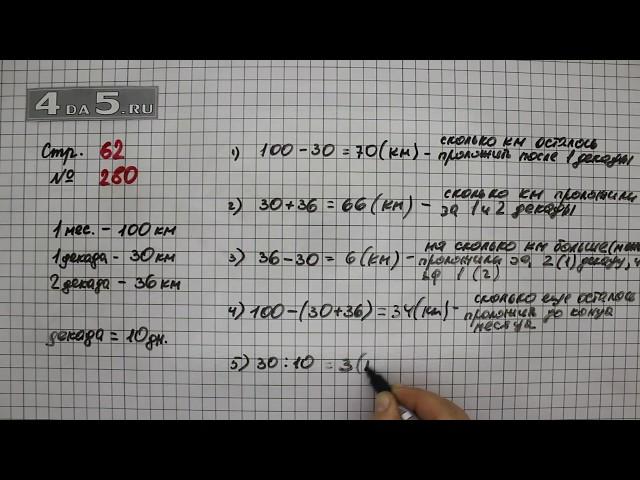 4DA5.RU
Стр. 62
№ 280
1 мес. – 100 км
1 декада – 30 км
2 декада – 36 км
декада = 10 дн.
1) 100 – 30 = 70 (км) – сколько км осталось
проложить после 1 декады
2) 30 + 36 = 66 (км) – сколько км проложили
за 1 и 2 декады
3) 36 – 30 = 6 (км) – на сколько км больше
проложили за 2 (1) декаду, ч
1 (2)
4) 100 – (30 + 36) = 34 (км) – сколько еще осталось
проложить до конца
месяца
5) 30 : 10 = 3 (